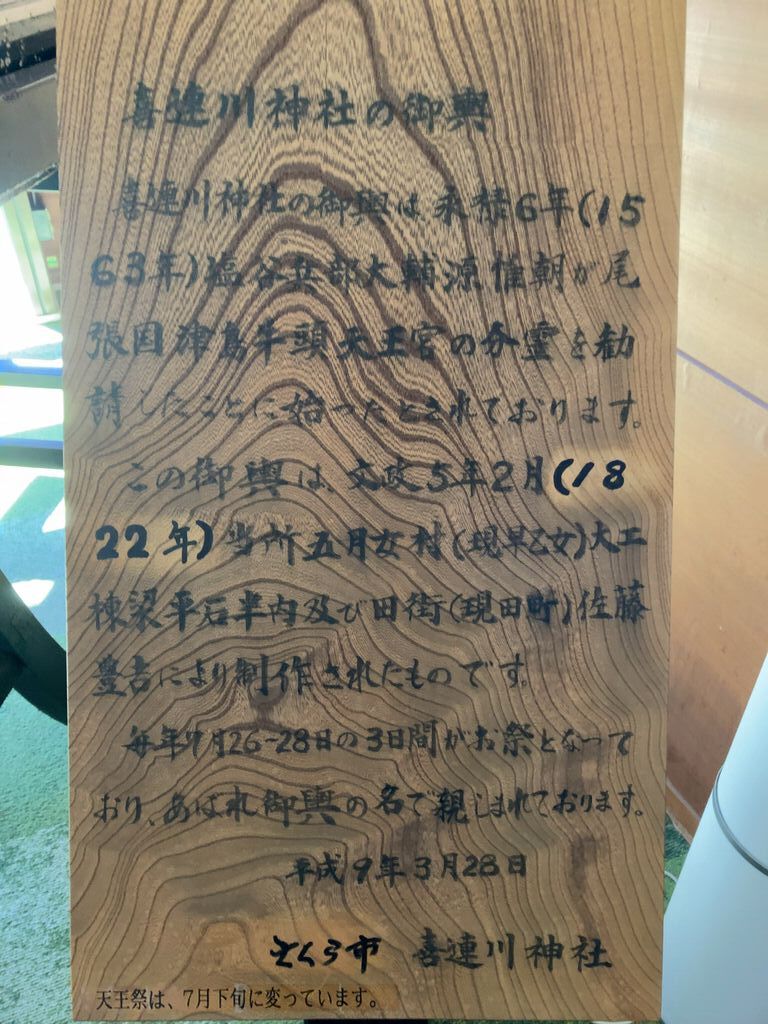 喜連川神社の御輿
喜連川神社の御輿は永禄6年(15
63年)塩谷兵部大輔源惟朝が尾
張国津島牛頭天王宮の分霊を勧
請したことに始ったとされております。
この御輿は、文政5年2月(18
22年)当所五月女村(現早乙女)大工
棟梁平石半内及び田街(現田町)佐藤
豊吉により制作されたものです。
毎年7月26-28日の3日間がお祭となって
おり、あばれ御輿の名で親しまれております。
平成9年3月28日
さくら市 喜連川神社
天王祭は、7月下旬に変っています。